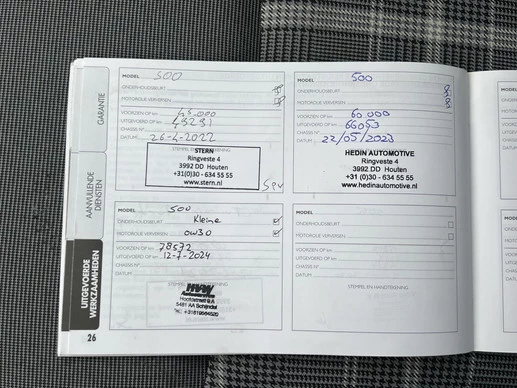 GARANTIE
AANVULLENDE DIENSTEN
UITGEVOERDE WERKZAAMHEDEN
MODEL 500
ONDERHOUDSBEURT
MOTOROLIE VERVERSEN
VOORZIEN OP km 45.000
UITGEVOERD OP km
CHASSIS N°
DATUM 26-4-2022
STEMPEL EN HANDTEKENING
STERN
Ringveste 4
3992 DD Houten
+31(0)30 - 634 55 55
www.stern.nl
MODEL 500
ONDERHOUDSBEURT
MOTOROLIE VERVERSEN
VOORZIEN OP km 60.000
UITGEVOERD OP km 66053
CHASSIS N°
DATUM 22/05/2023
HEDIN AUTOMOTIVE
Ringveste 4
3992 DD Houten
+31(0)30 - 634 55 55
www.hedinautomotive.nl
MODEL 500
ONDERHOUDSBEURT Kleine
MOTOROLIE VERVERSEN 0W30
VOORZIEN OP km 78572
UITGEVOERD OP km 12-7-2024
CHASSIS N°
DATUM
STEMPEL
5481 AA Schijndel
MODEL
ONDERHOUDSBEURT
MOTOROLIE VERVERSEN
VOORZIEN OP km
UITGEVOERD OP km
CHASSIS N°
DATUM
STEMPEL EN HANDTEKENING
26